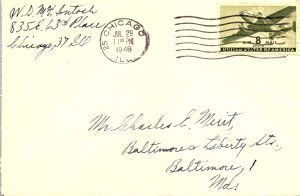 W. D. McIntosh
835 E. 63rd Place
Chicago, 37 Ill
25 CHICAGO
JUL 29
11 30 PM
1946
ILL.
AIR 8¢ MAIL
UNITED STATES OF AMERICA
Mr. Charles E. Merit,
Baltimore & Liberty Sts.,
Baltimore, 1
Md.